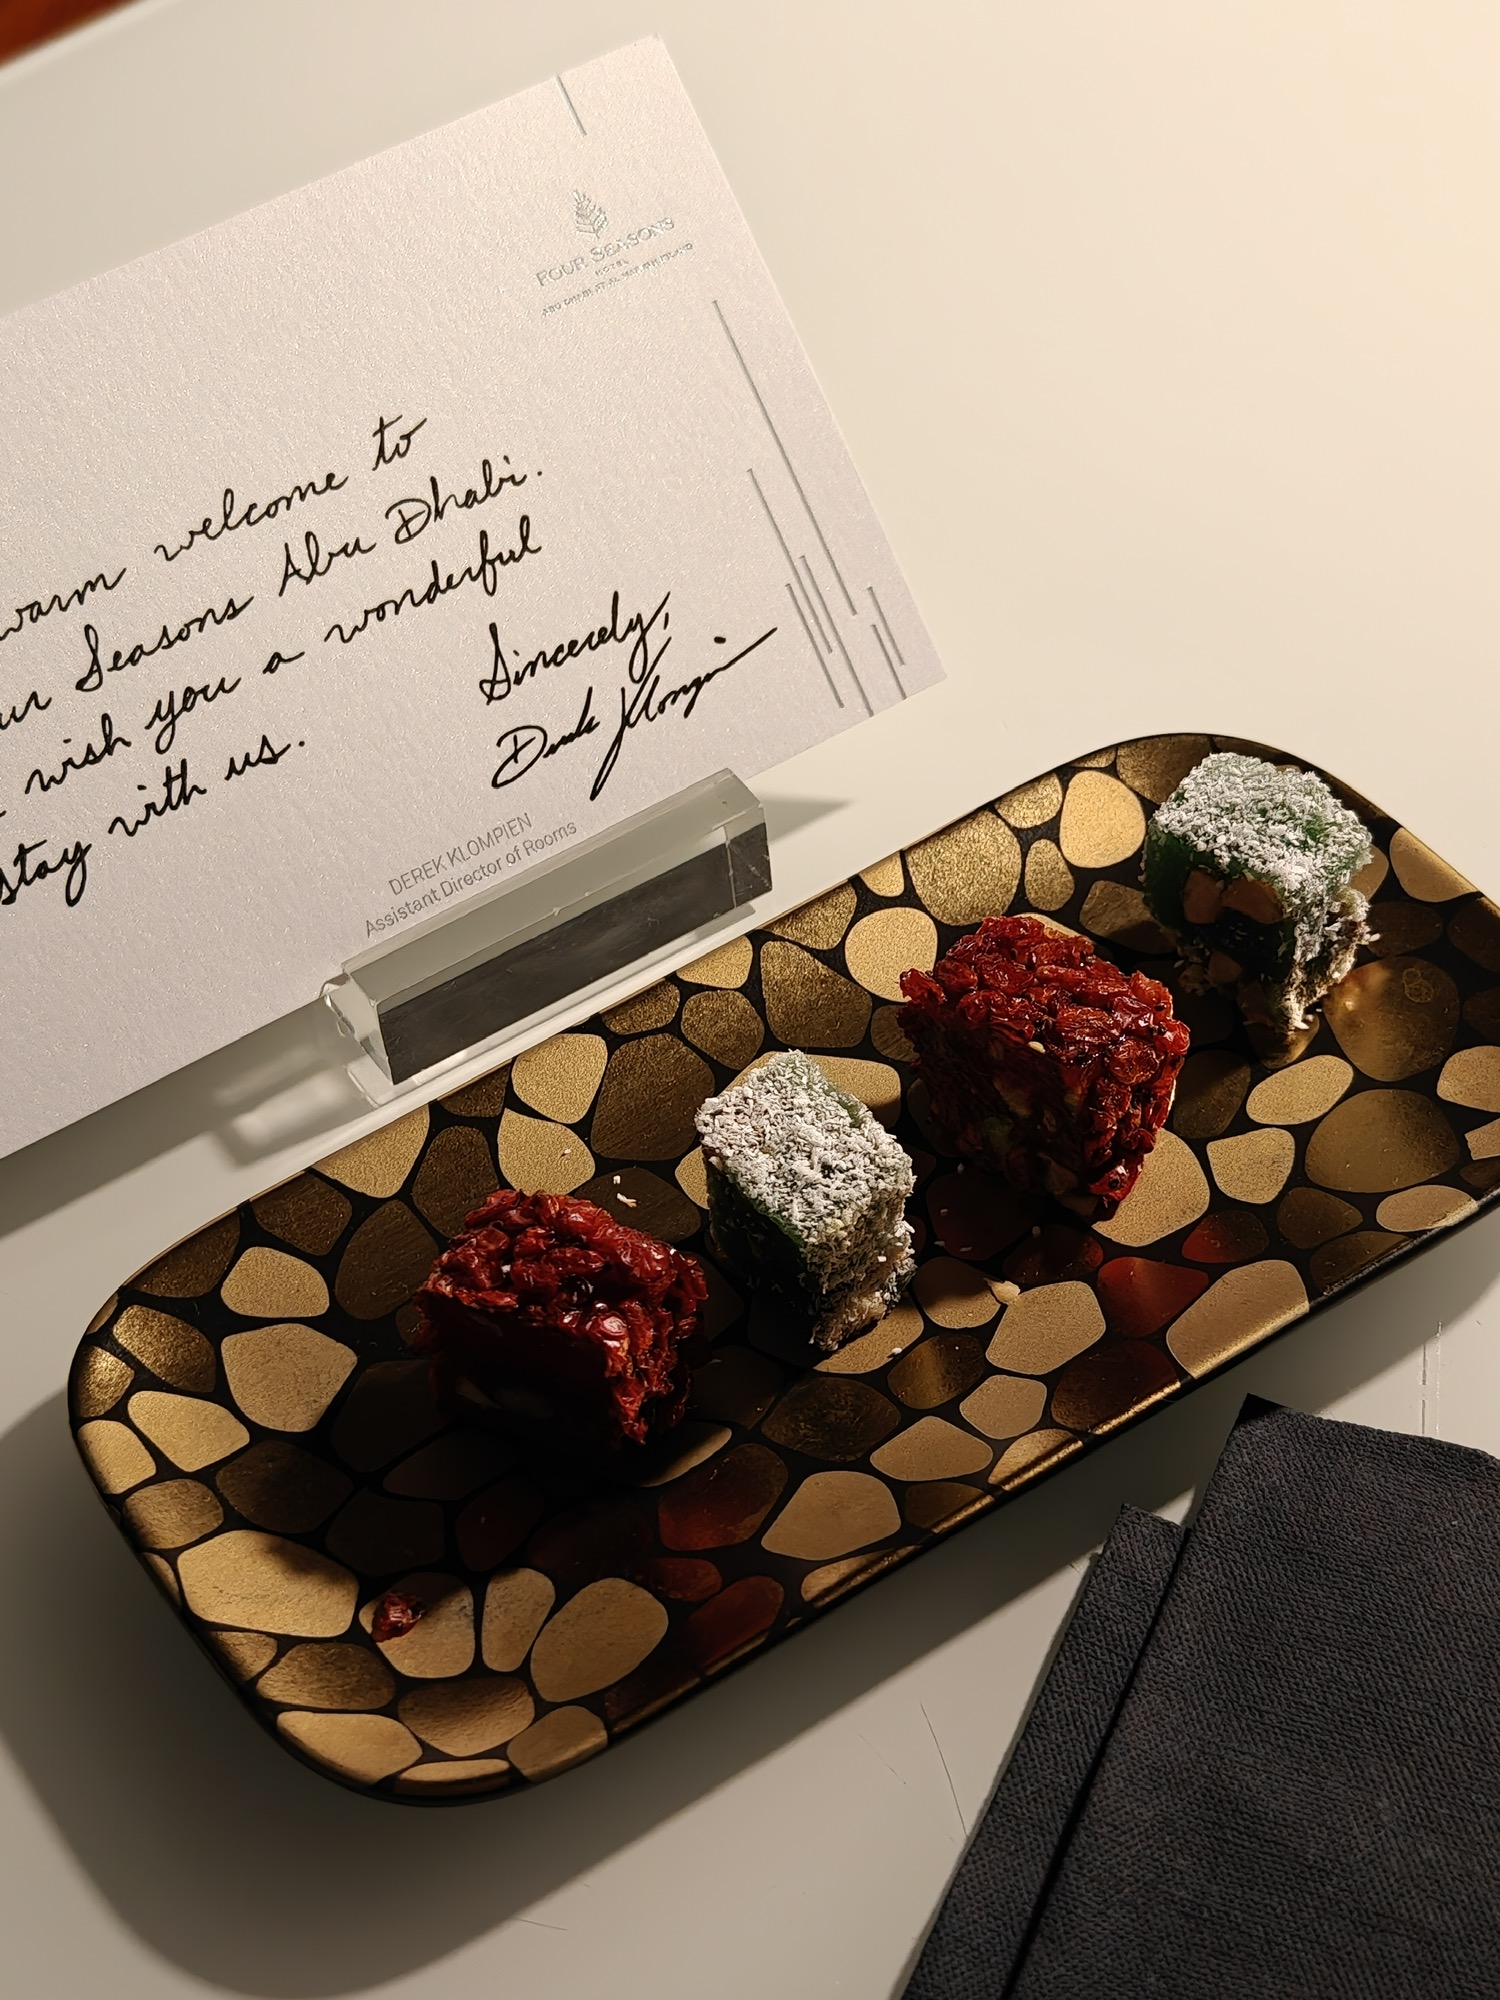 FOUR SEASONS
HOTEL
ABU DHABI AT AL MARYAH ISLAND
warm welcome to
Seasons Abu Dhabi.
wish you a wonderful
stay with us.
Sincerely,
Derek Klompien
DEREK KLOMPIEN
Assistant Director of Rooms